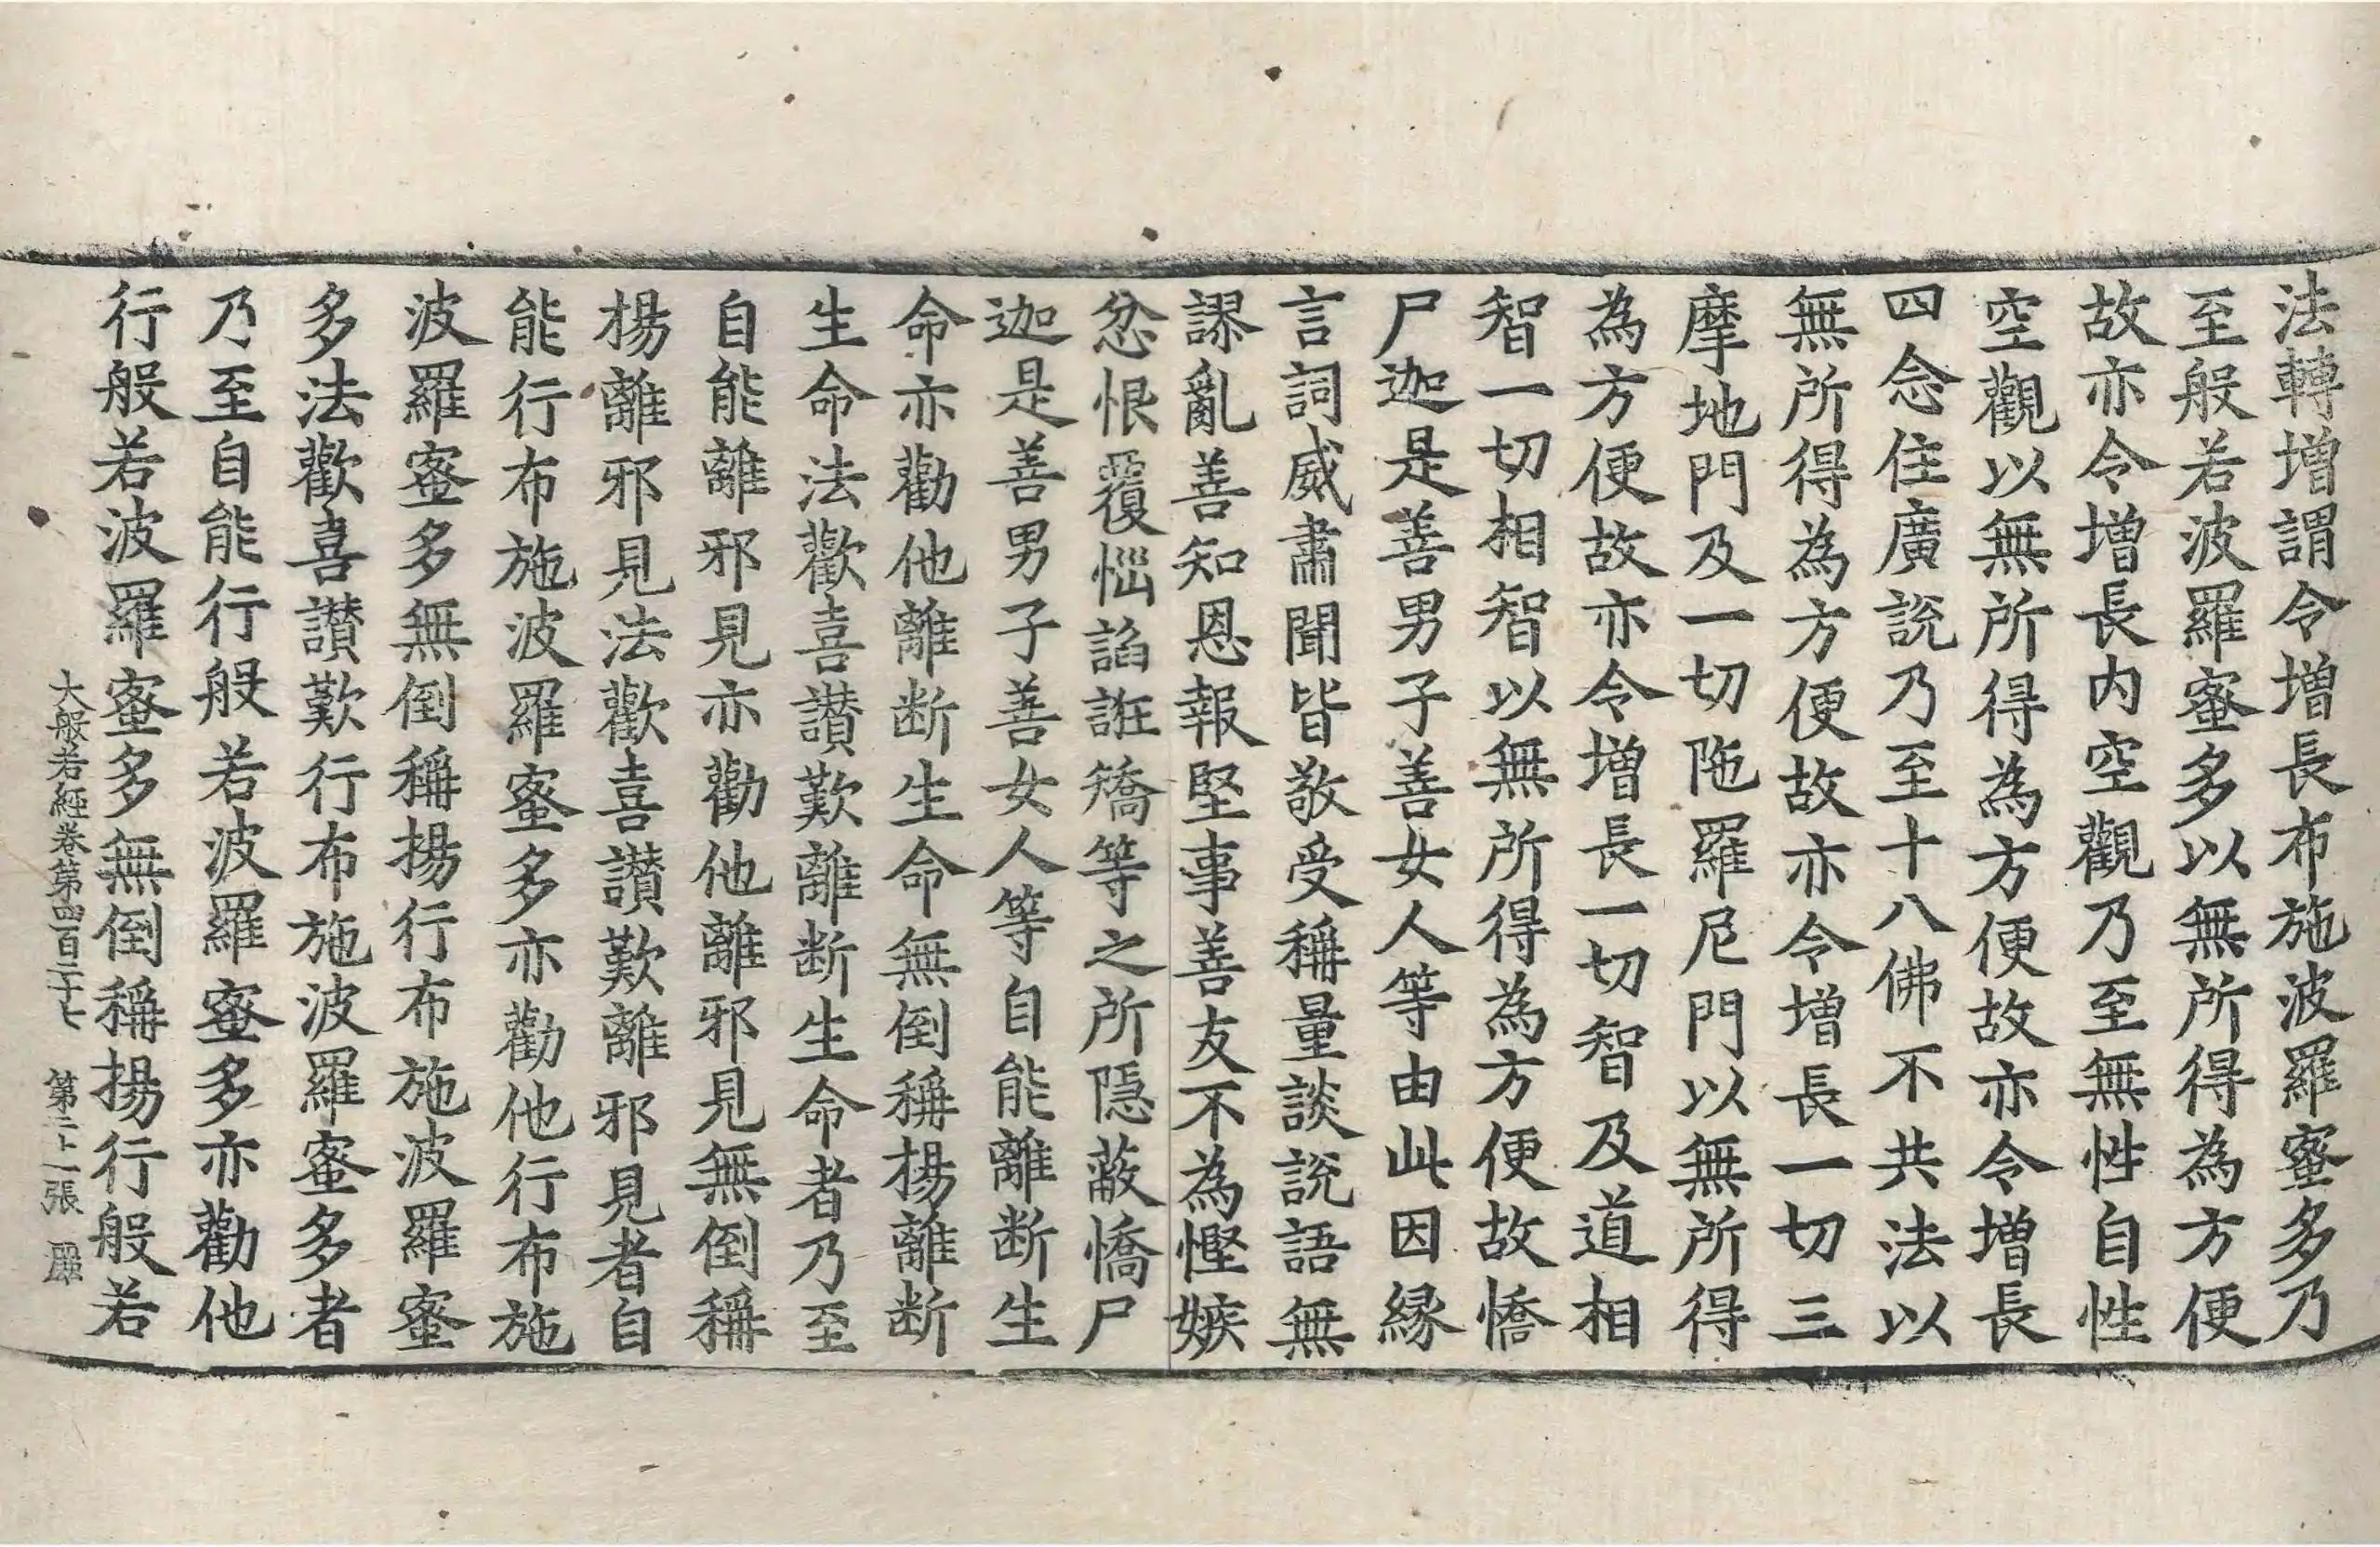 法轉增謂令增長布施波羅蜜多乃
至般若波羅蜜多以無所得為方便
故亦令增長内空觀乃至無性自性
空觀以無所得為方便故亦令增長
四念住廣說乃至十八佛不共法以
無所得為方便故亦令增長一切三
摩地門及一切陁羅尼門以無所得
為方便故亦令增長一切智及道相
智一切相智以無所得為方便故憍
尸迦是善男子善女人等由此因緣
言詞威肅聞皆敬受稱量談說語無
謬亂善知恩報堅事善友不為慳嫉
忿恨覆惱諂誑矯等之所隱蔽憍尸
迦是善男子善女人等自能離斷生
命亦勸他離斷生命無倒稱揚離斷
生命法歡喜讃歎離斷生命者乃至
自能離邪見亦勸他離邪見無倒稱
揚離邪見法歡喜讃歎離邪見者自
能行布施波羅蜜多亦勸他行布施
波羅蜜多無倒稱揚行布施波羅蜜
多法歡喜讃歎行布施波羅蜜多者
乃至自能行般若波羅蜜多亦勸他
行般若波羅蜜多無倒稱揚行般若
大般若經卷第四百二十七 第二十一張